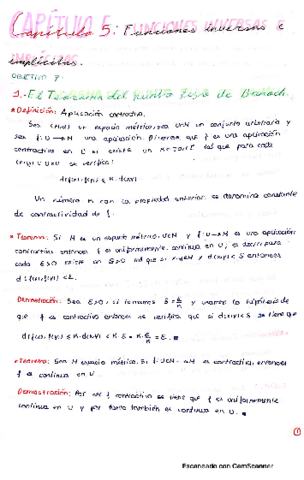 Capítulo 5: Funciones inversas e
implícitas.
OBJETIVO 7
1.- El Teorema del punto fijo de Banach.
* Definición: Aplicación contractiva.
Sea un espacio métrico, sea U⊂M un conjunto arbitrario y
sea f: U→M una aplicación. Diremos que f es una aplicación
contractiva en U si existe un tal que para cada
x,y ∈ U se verifica:
d(f(x),f(y)) ≤ K·d(x,y)
Un número K con la propiedad anterior se denomina constante
de contractividad de f.
* Teorema: Si M es un espacio métrico, U⊂M y f: U→M es una aplicación
contractiva entonces f es uniformemente continua en U, es decir, para
cada ε>0 existe un δ>0 tal que si x,y∈U y d(x,y)<δ entonces
d(f(x),f(y))<ε.
Demostración: Sea ε>0; si tomamos δ= y usamos la hipótesis de
que f es contractiva entonces se verifica que si d(x,y)<δ se tiene que
d(f(x),f(y)) ≤ K·d(x,y) < K·δ = = ε.
* Teorema: Sea M espacio métrico. Si f: U⊂M→M es contractiva, entonces
f es continua en U.
Demostración: Por ser f contractiva se tiene que f es uniformemente
continua en U y por tanto también es continua en U.
1
Escaneado con CamScanner